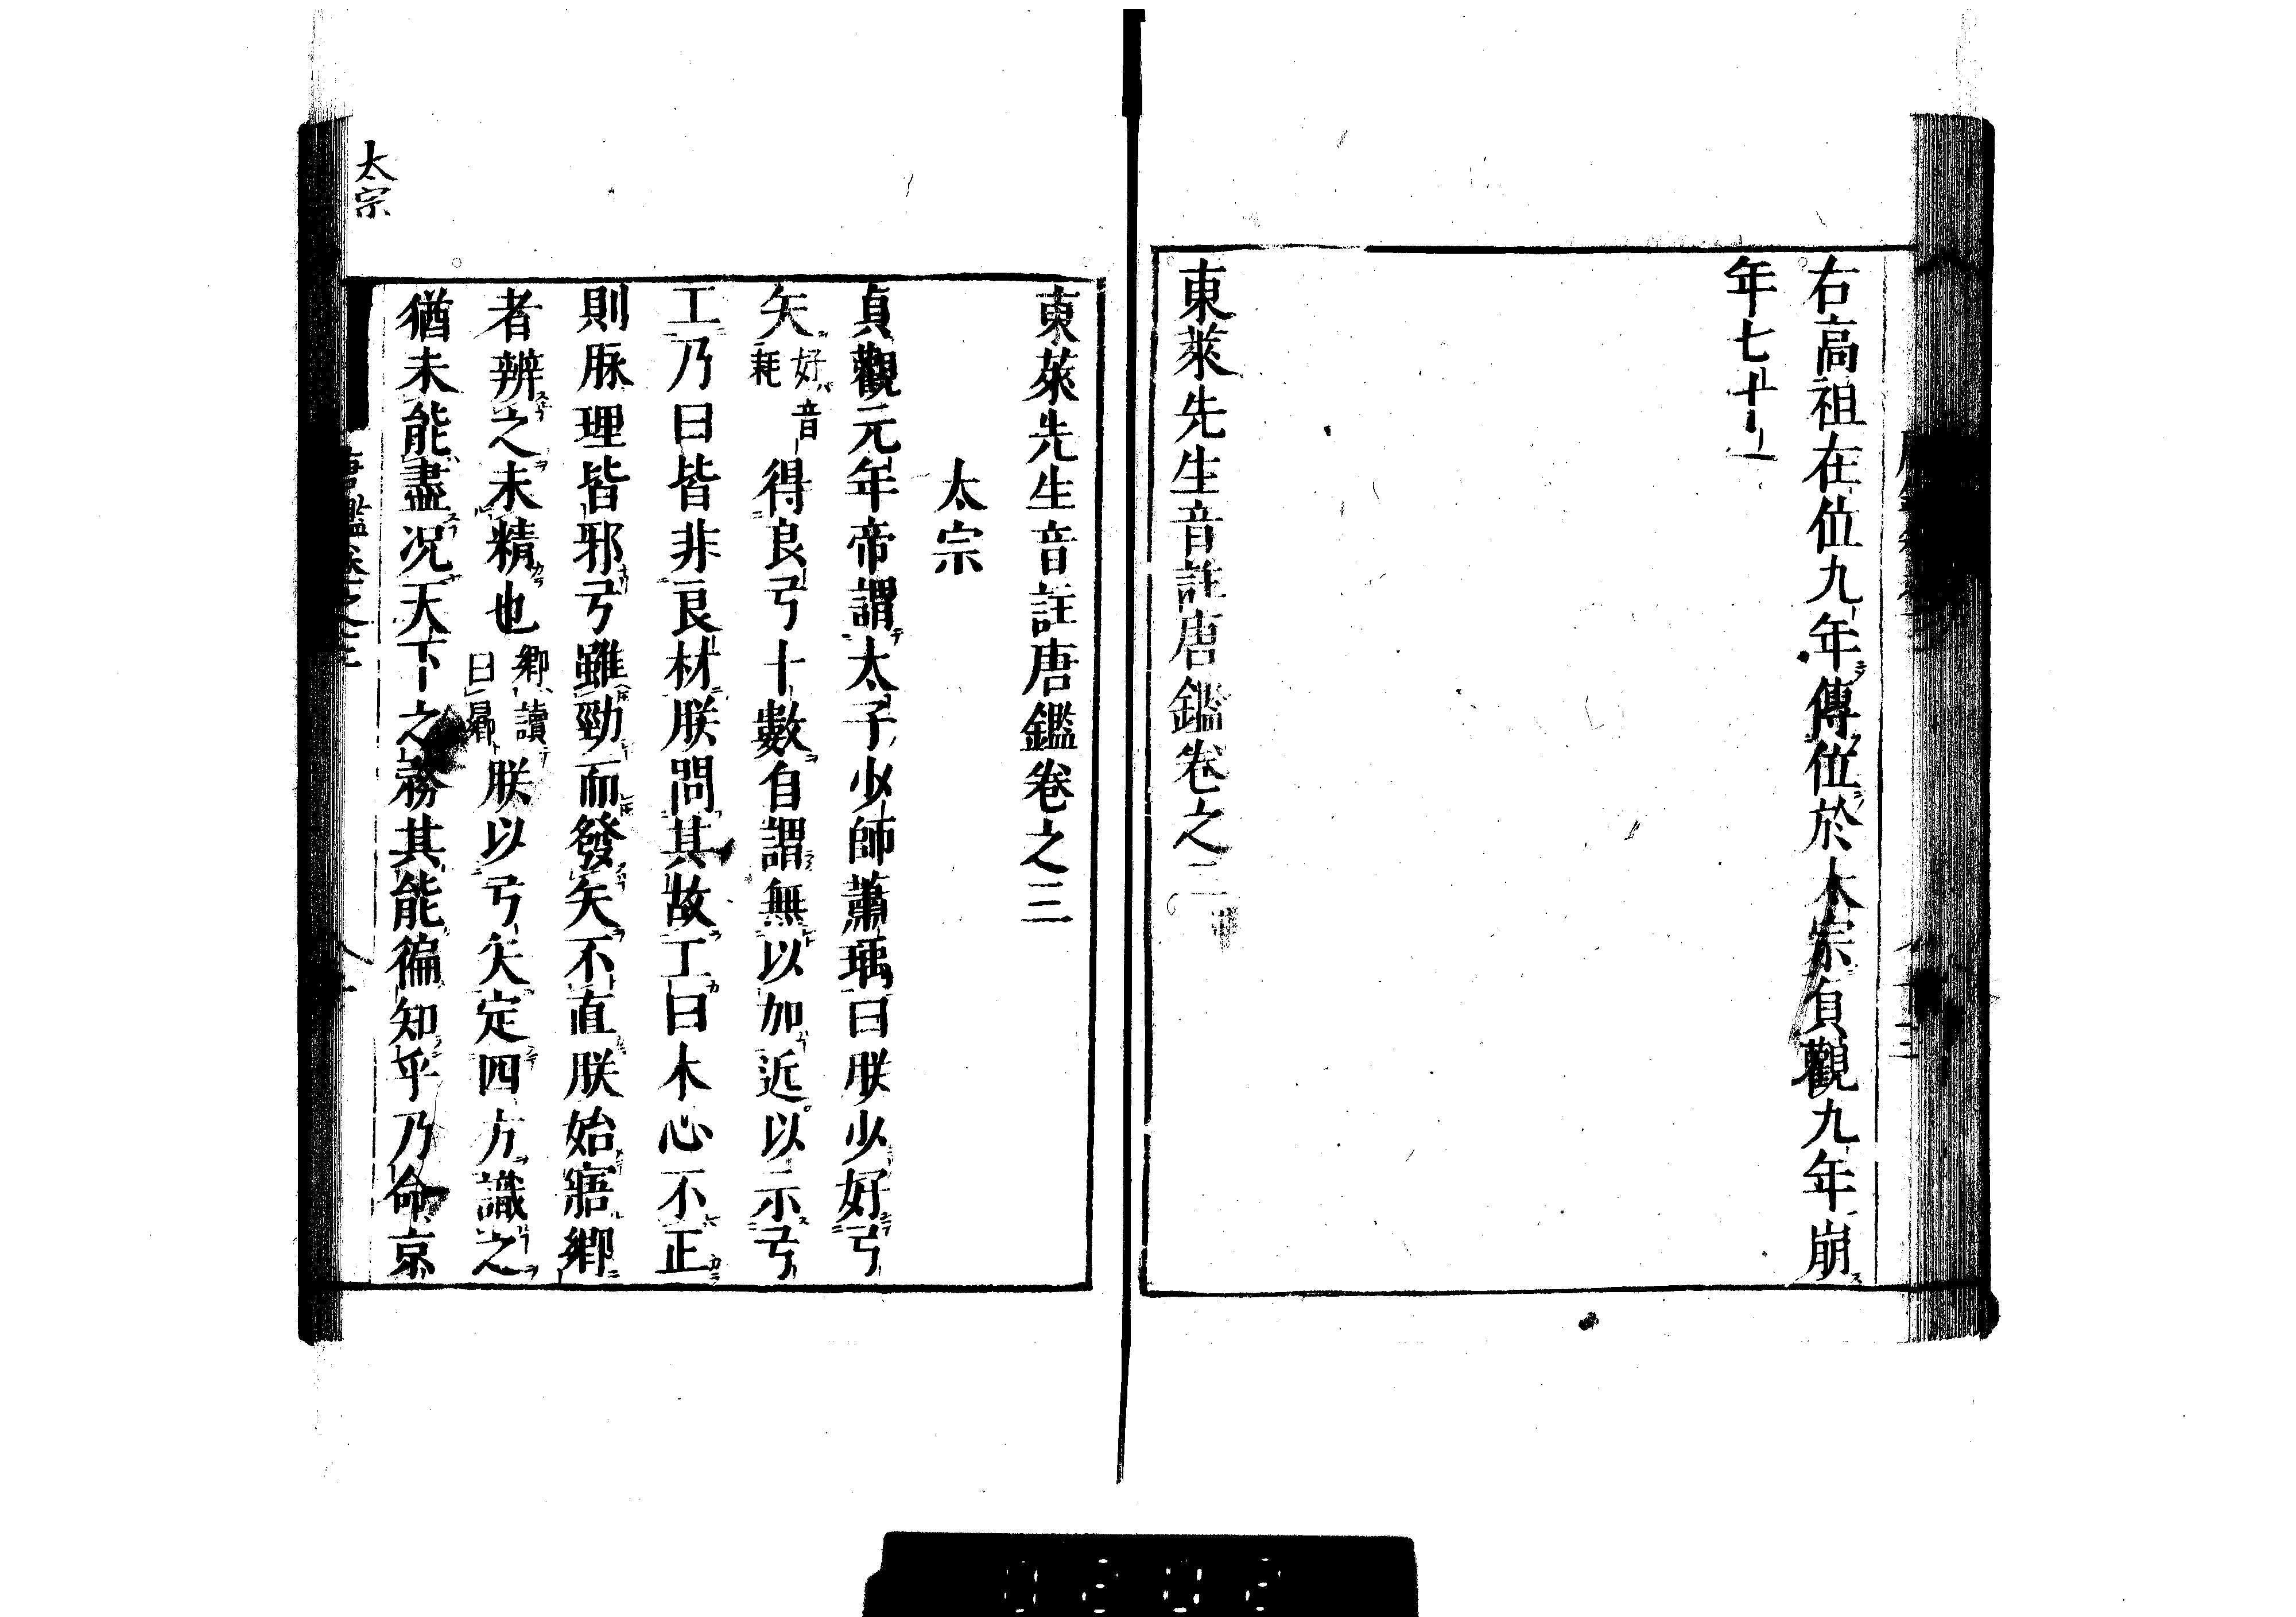 右高祖在位九年傳位於太宗貞觀九年崩
年七十一
東萊先生音註唐鑑卷之二
東萊先生音註唐鑑卷之三
太宗
貞觀元年帝謂太子少師蕭瑀曰朕少好弓
矢好音耗得良弓十數自謂無以加近以示弓
工乃曰皆非良材朕問其故工曰木心不正
則脉理皆邪弓雖勁而發矢不直朕始寤鄉
者辨之未精也鄉讀曰曏朕以弓矢定四方識之
猶未能盡况天下之務其能徧知乎乃命京
太宗
唐鑑卷之三